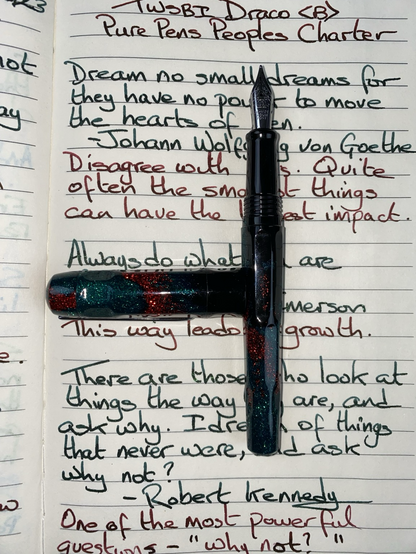 TWSBI Draco <B>
Pure Pens Peoples Charter
Dream no small dreams for
they have no to move
the hearts of
-Johann von Goethe
Disagree with. Quite
often the things
can have the impact.
Always do what are
Emerson
This way leads growth.
There are those who look at
things the way are, and
ask why. I of things
that never were, ask
why not?
- Robert Kennedy
One of the most powerful
questions - "why not?"